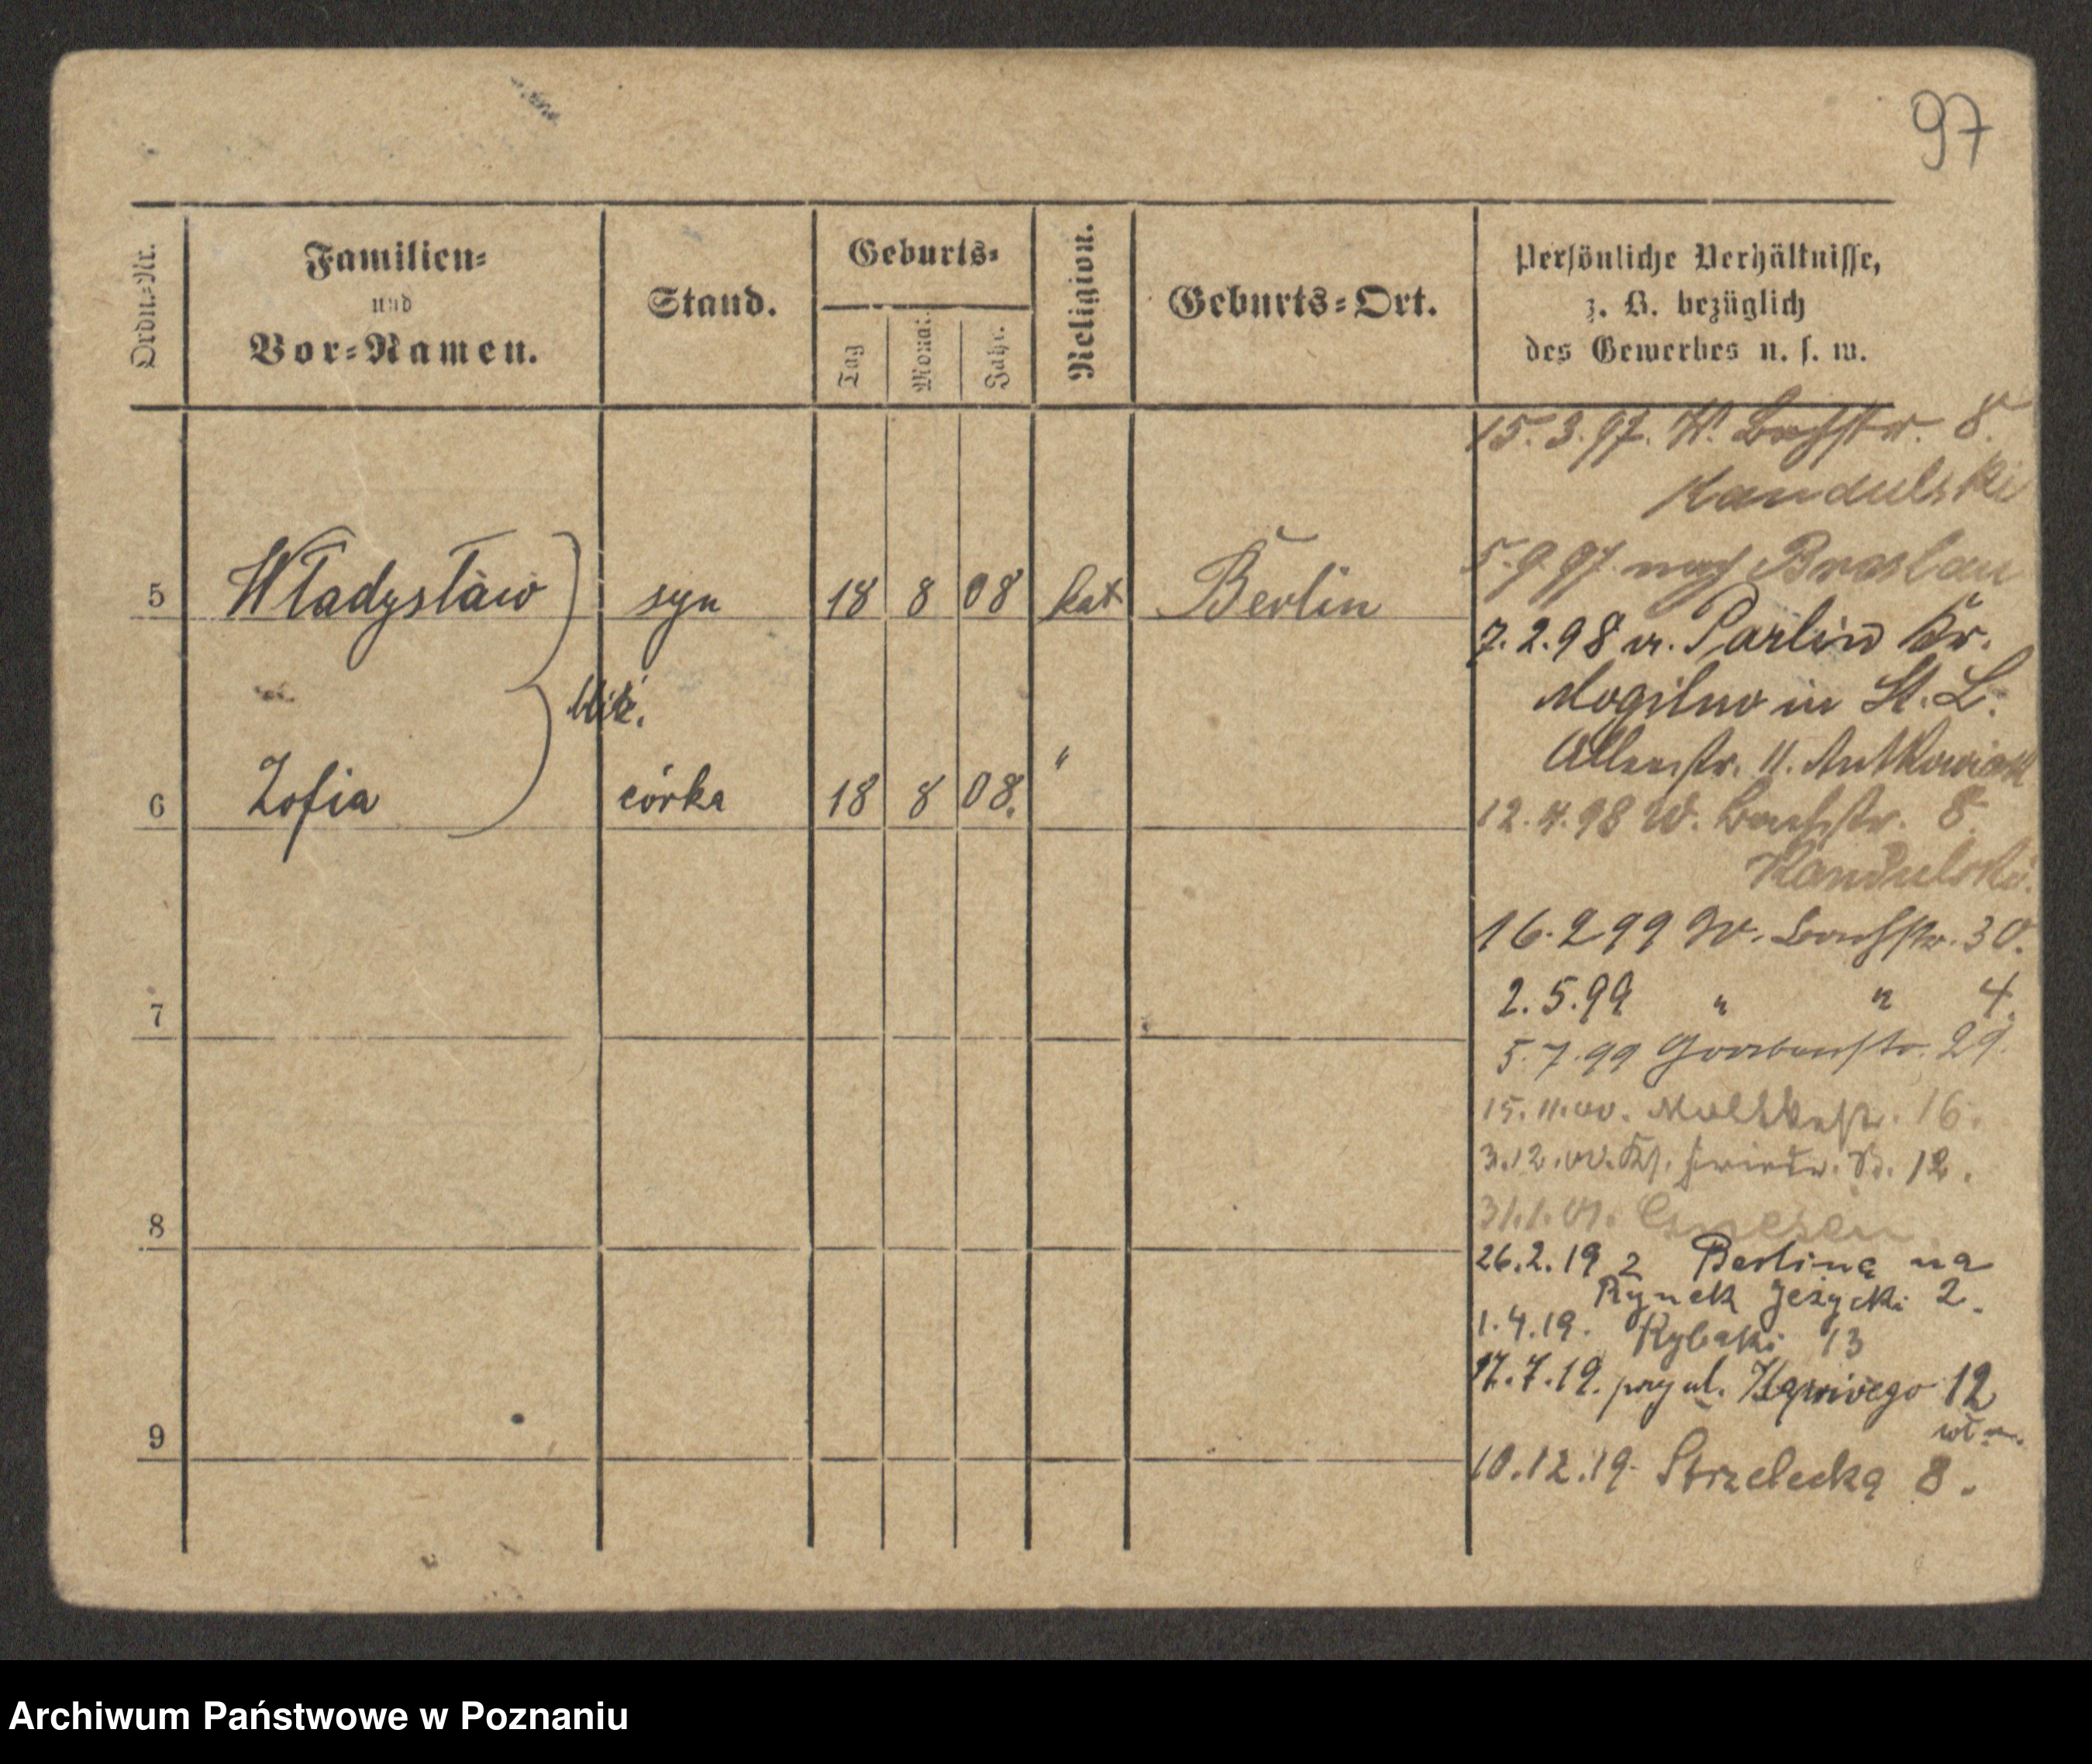 97
Ordn.-Nr.
Familien-
und
Vor-Namen.
Stand.
Geburts-
Tag
Monat.
Jahr.
Religion.
Geburts-Ort.
Persönliche Verhältnisse,
z. B. bezüglich
des Gewerbes u. s. w.
15.3.97. W. Bachstr. 8.
Kandulski
5.9.97 nach Breslau
5 Władysław syn 18 8 08 kat Berlin
7.2.98 v. Parlin Kr.
Mogilno in St. L.
bliź.
Allerstr. 11. Antkowiak
6 Zofia córka 18 8 08. "
12.4.98 W. Bachstr. 8.
Kandulski.
16.2 99 W. Bachstr. 30.
2.5.99 " " 4.
7
5.7.99 Grabenstr. 29.
15.11.00. Moltkestr. 16.
3.12.00. 12.
31.1.01. Gnesen
8
26.2.19 z Berlina na
Rynek Jeżycki 2.
1.4.19. Rybaki 13
17.7.19. przy ul. 12
9
10.12.19. Strzelecka 8.
Archiwum Państwowe w Poznaniu